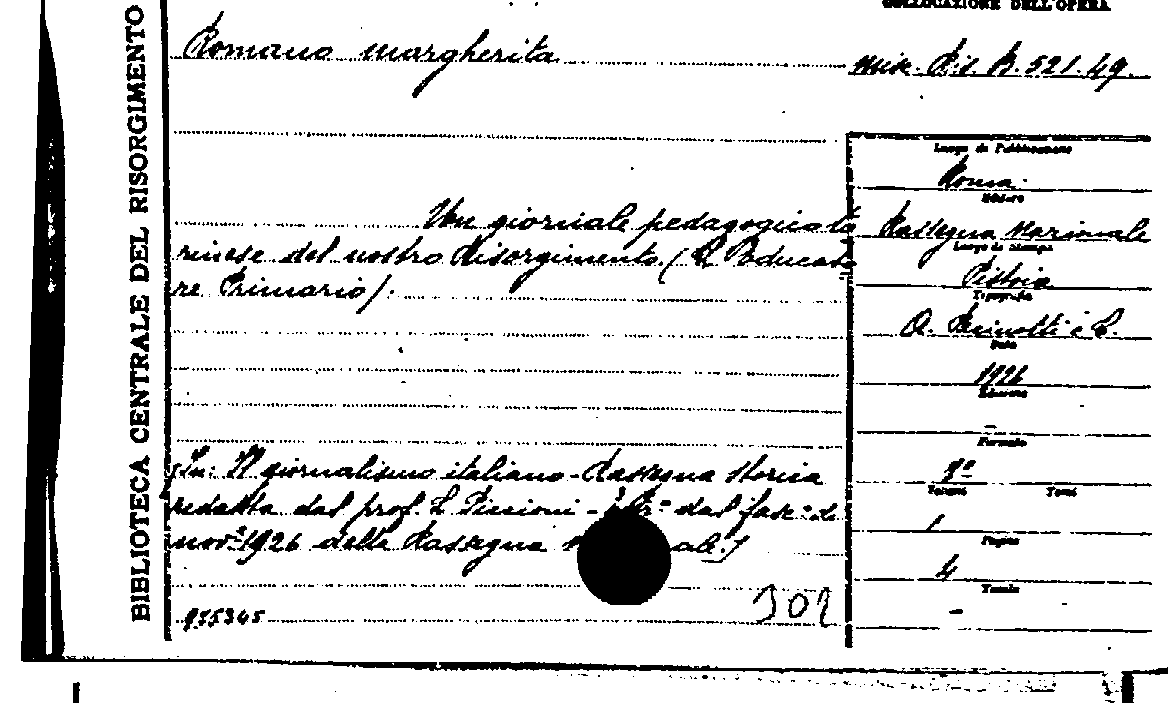 COLLOCAZIONE DELL'OPERA
Romano Margherita
Misc. Ris. B. 521. 49.
BIBLIOTECA CENTRALE DEL RISORGIMENTO
Un giornale pedagogico to
rinese del nostro Risorgimento. (L'Educato
re Primario).
(In: Il giornalismo italiano - Rassegna storica
redatta dal prof. L. Piccioni - dal fasc. di
nov. 1926 della Rassegna
955345
302
Luogo di Pubblicazione
Roma
Editore
Rassegna Nazionale
Luogo di Stampa
Pistoia
Tipografia
e C.
Data
1926
Edizione
-
Formato
8º
Volumi Tomi
1
Pagine
4
Tavole
-